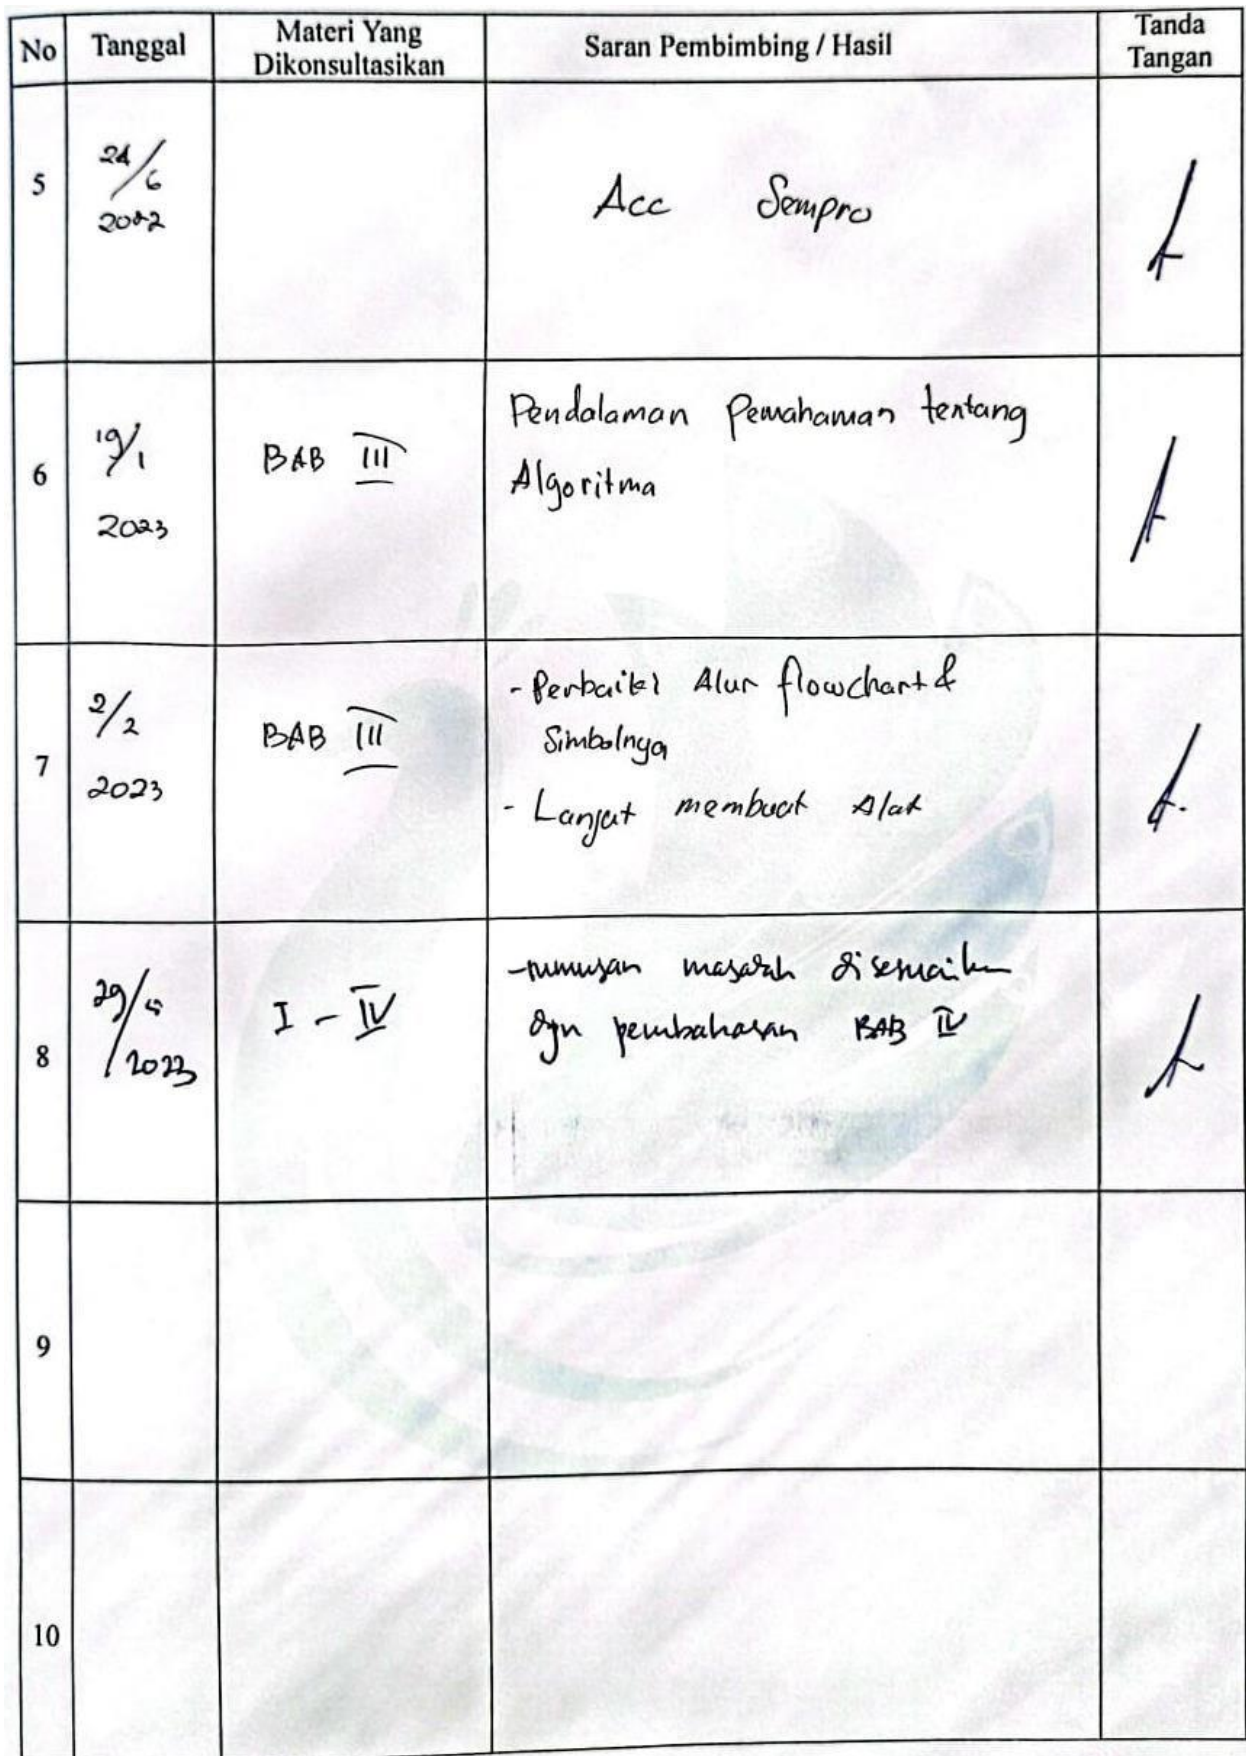 No Tanggal Materi Yang Dikonsultasikan Saran Pembimbing / Hasil Tanda Tangan
5
24/6
2022
Acc Sempro
6
19/1
2023
BAB III
Pendalaman Pemahaman tentang
Algoritma
7
2/2
2023
BAB III
- Perbaiki Alur flowchart &
Simbolnya
- Lanjut membuat Alat
8
29/
2023
I - IV
- rumusan masalah disesuaikan
dgn pembahasan BAB IV
9
10